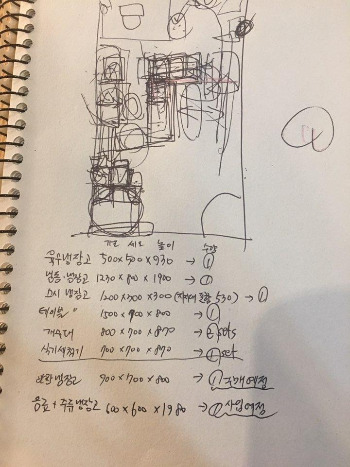 가로 세로 높이 수량
육수냉장고 500×500×930 → ①
냉동.냉장고 1230×800×1900 → ①
스시 냉장고 1200×300×300 (포함 530) → ①
테이블 " 1500×900×800 → ①
800×700×870 →
식기세척기 700×700×870 → ①
냉장고 900×700×800 → ① 구매예정
음료+주류냉장고 600×600×1980 → ① 사입예정